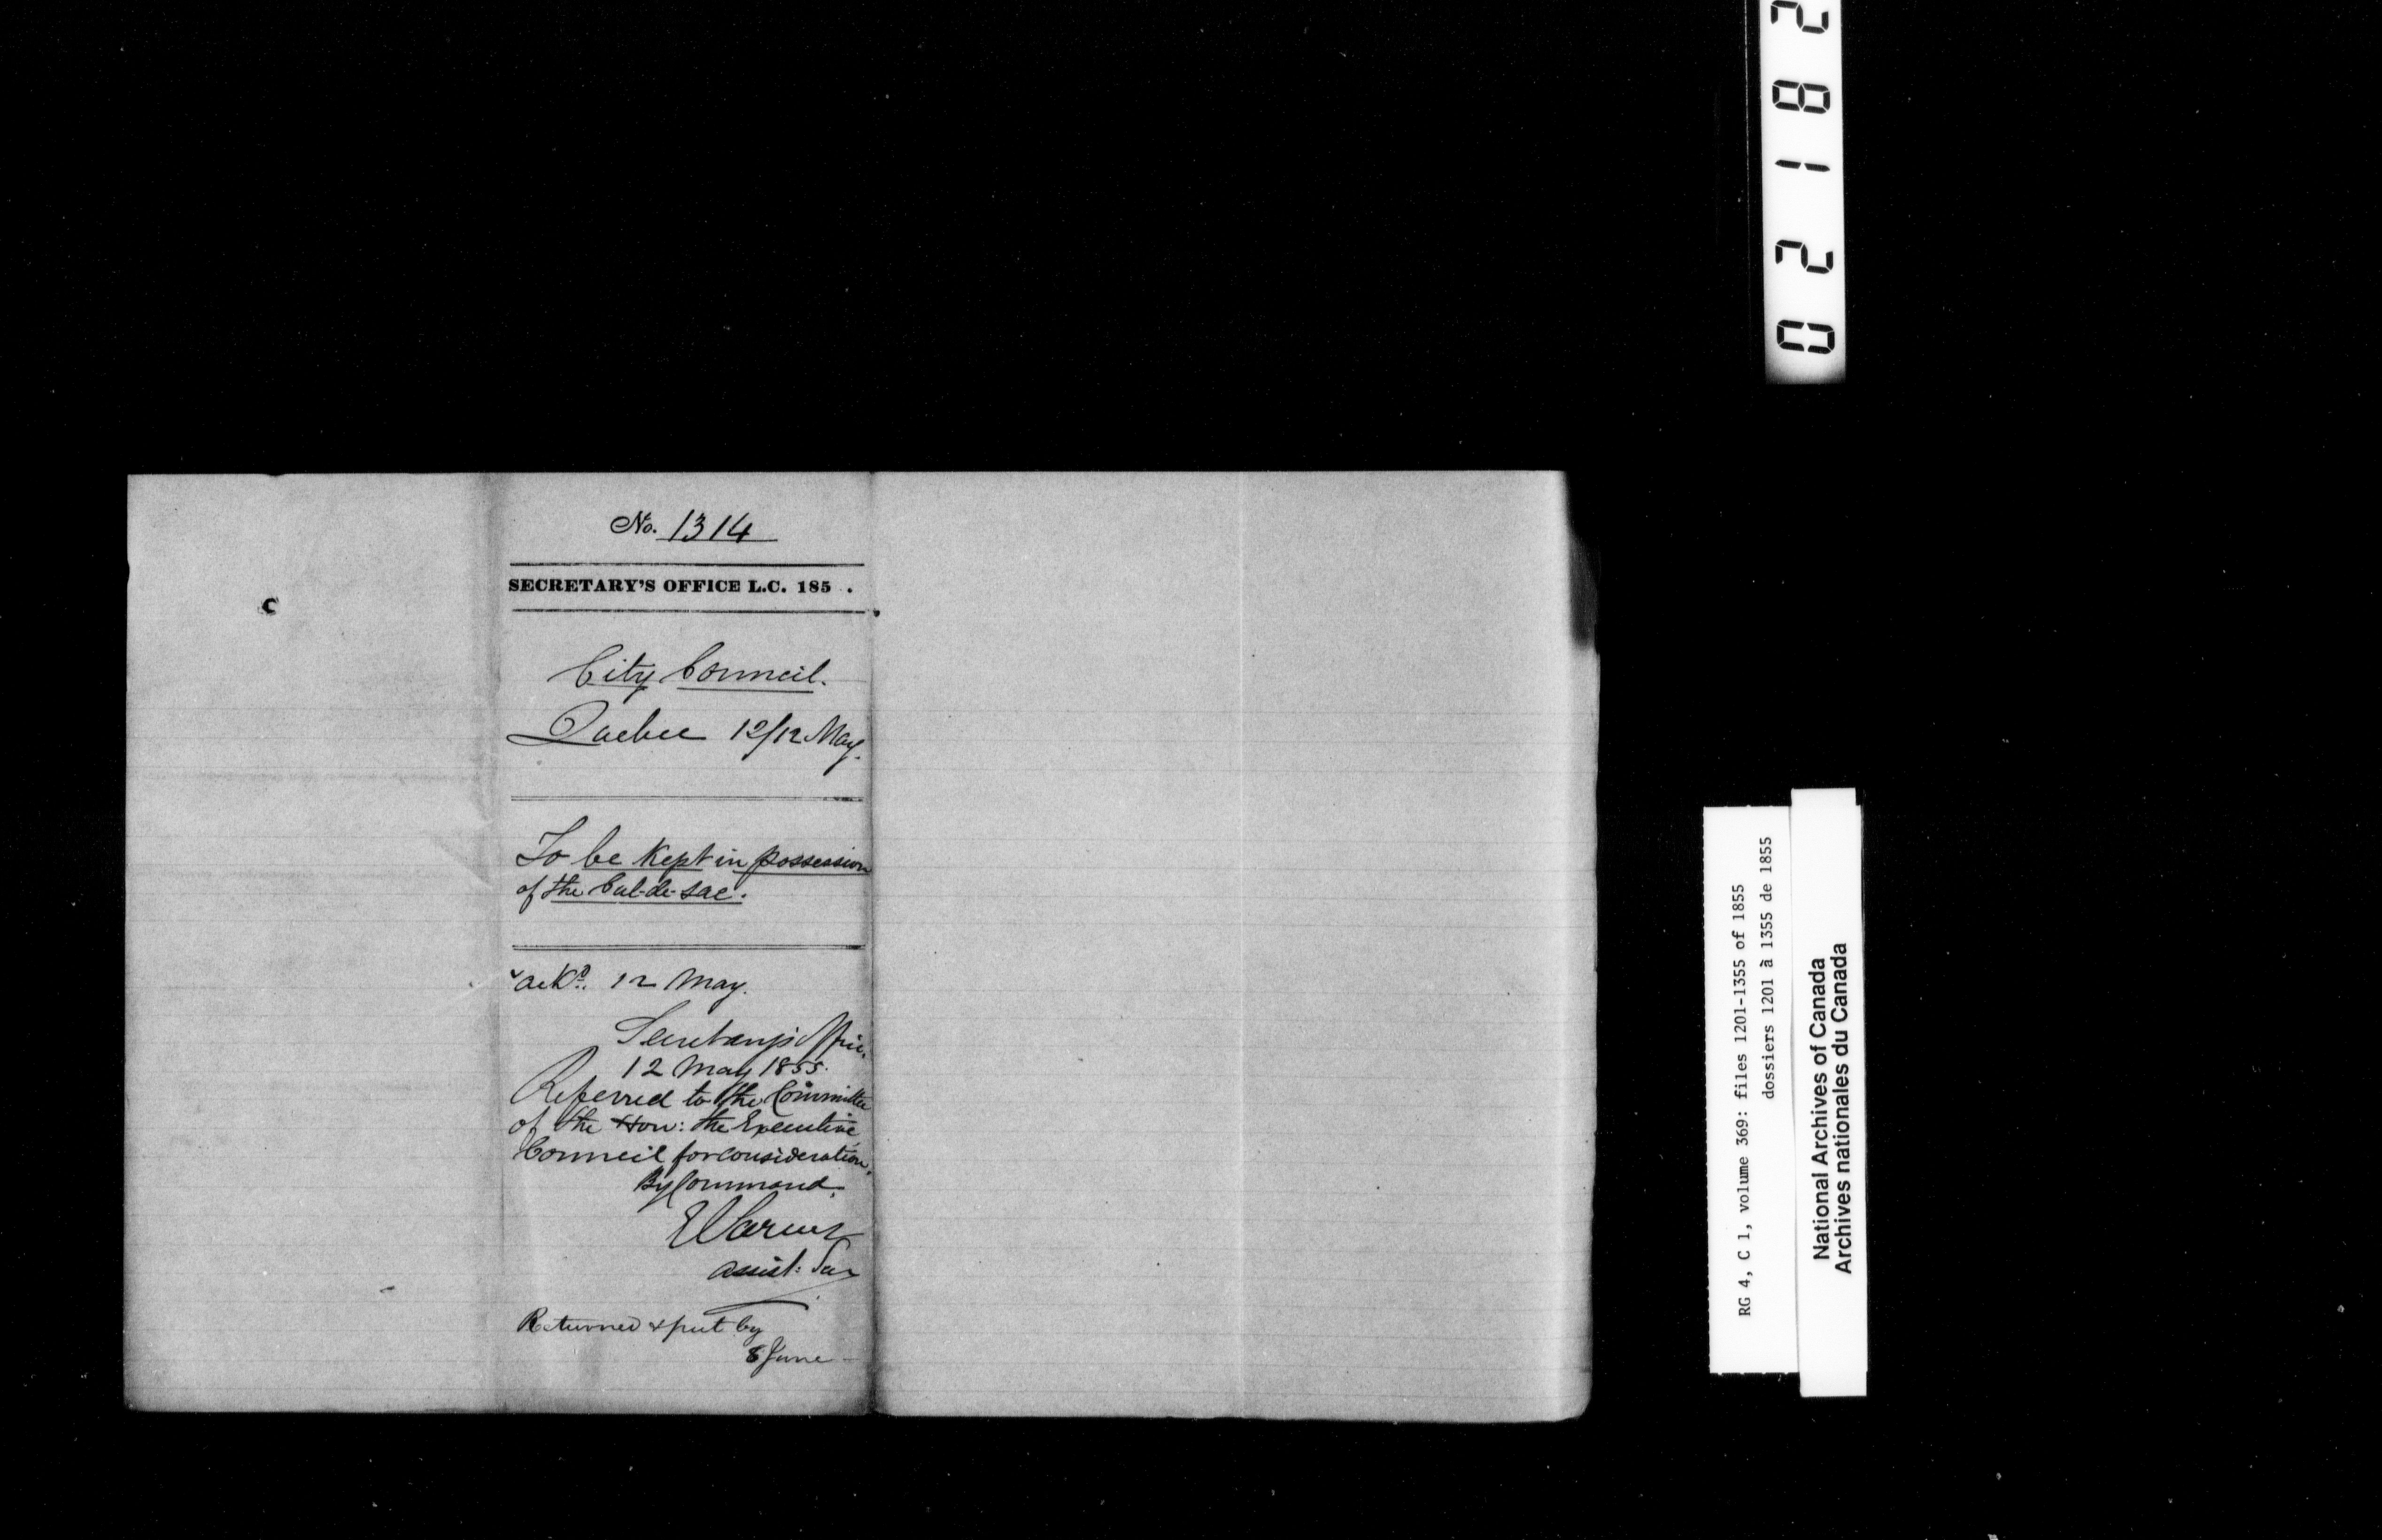 No. 1314
SECRETARY'S OFFICE L.C. 185 .
City Council.
Quebec 12/12 May.
To be kept in possession
of the Cul-de-sac.
ackd. 12 May.
Secretary's Office
12 May 1855.
Referred to the Committee
of the Hon: the Executive
Council for consideration,
By Command,
Assist: Sec
Returned & put by
8 June
02182
RG 4, C 1, volume 369: files 1201-1355 of 1855
dossiers 1201 à 1355 de 1855
National Archives of Canada
Archives nationales du Canada